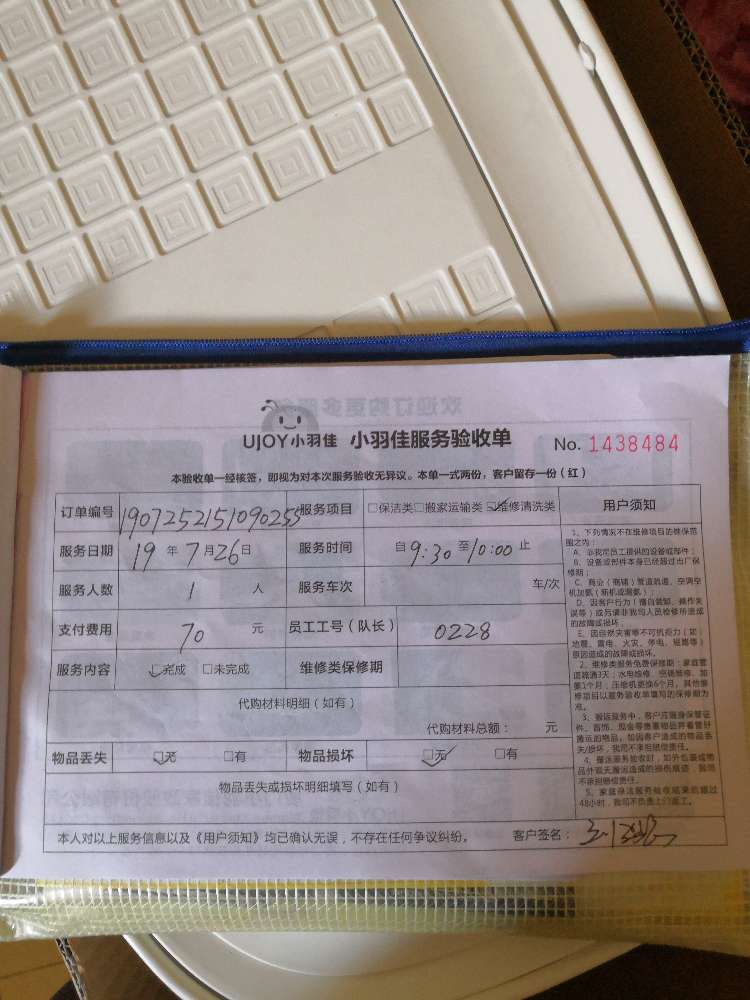 UJOY小羽佳 小羽佳服务验收单 No. 1438484
本验收单一经核签，即视为对本次服务验收无异议。本单一式两份，客户留存一份（红）
订单编号 1907252151090255 服务项目 □保洁类□搬家运输类☑维修清洗类 用户须知
服务日期 19 年 7 月 26 日 服务时间 自 9:30 至 10:00 止
服务人数 1 人 服务车次 车/次
支付费用 70 元 员工工号（队长） 0228
服务内容 ☑完成 □未完成 维修类保修期
代购材料明细（如有）
代购材料总额： 元
物品丢失 ☑无 □有 物品损坏 ☑无 □有
物品丢失或损坏明细填写（如有）
本人对以上服务信息以及《用户须知》均已确认无误，不存在任何争议纠纷。 客户签名：
1、下列情况不在维修项目的维保范
围之内：
A、非我司员工提供的设备或部件；
B、设备或部件本身已经超过出厂保
修期；
C、商业（商铺）管道疏通、空调空
机加氨（新机或漏氨）；
D、因客户行为（擅自装卸、操作失
误等）或另请非我司人员检修所造成
的故障或损坏。
E、因自然灾害等不可抗拒力（如：
地震、雷电、火灾、停电、短路等）
原因造成的故障或损坏。
2、维修类服务免费保修期：家庭管
道疏通3天；水电维修、空调维修、加
氨1个月；压缩机更换6个月。其他维
修项目以服务验收单填写的保修期为
准。
3、搬运服务中，客户应随身保管证
件、首饰、现金等贵重物品并看管好
搬运的物品，如因客户造成的物品丢
失/损坏，我司不承担赔偿责任。
4、搬运服务验收时，如外包装或物
品外观无搬运造成的损伤痕迹，我司
不承担赔偿责任。
5、家庭保洁服务验收结束后超过
48小时，我司不负责上门返工。